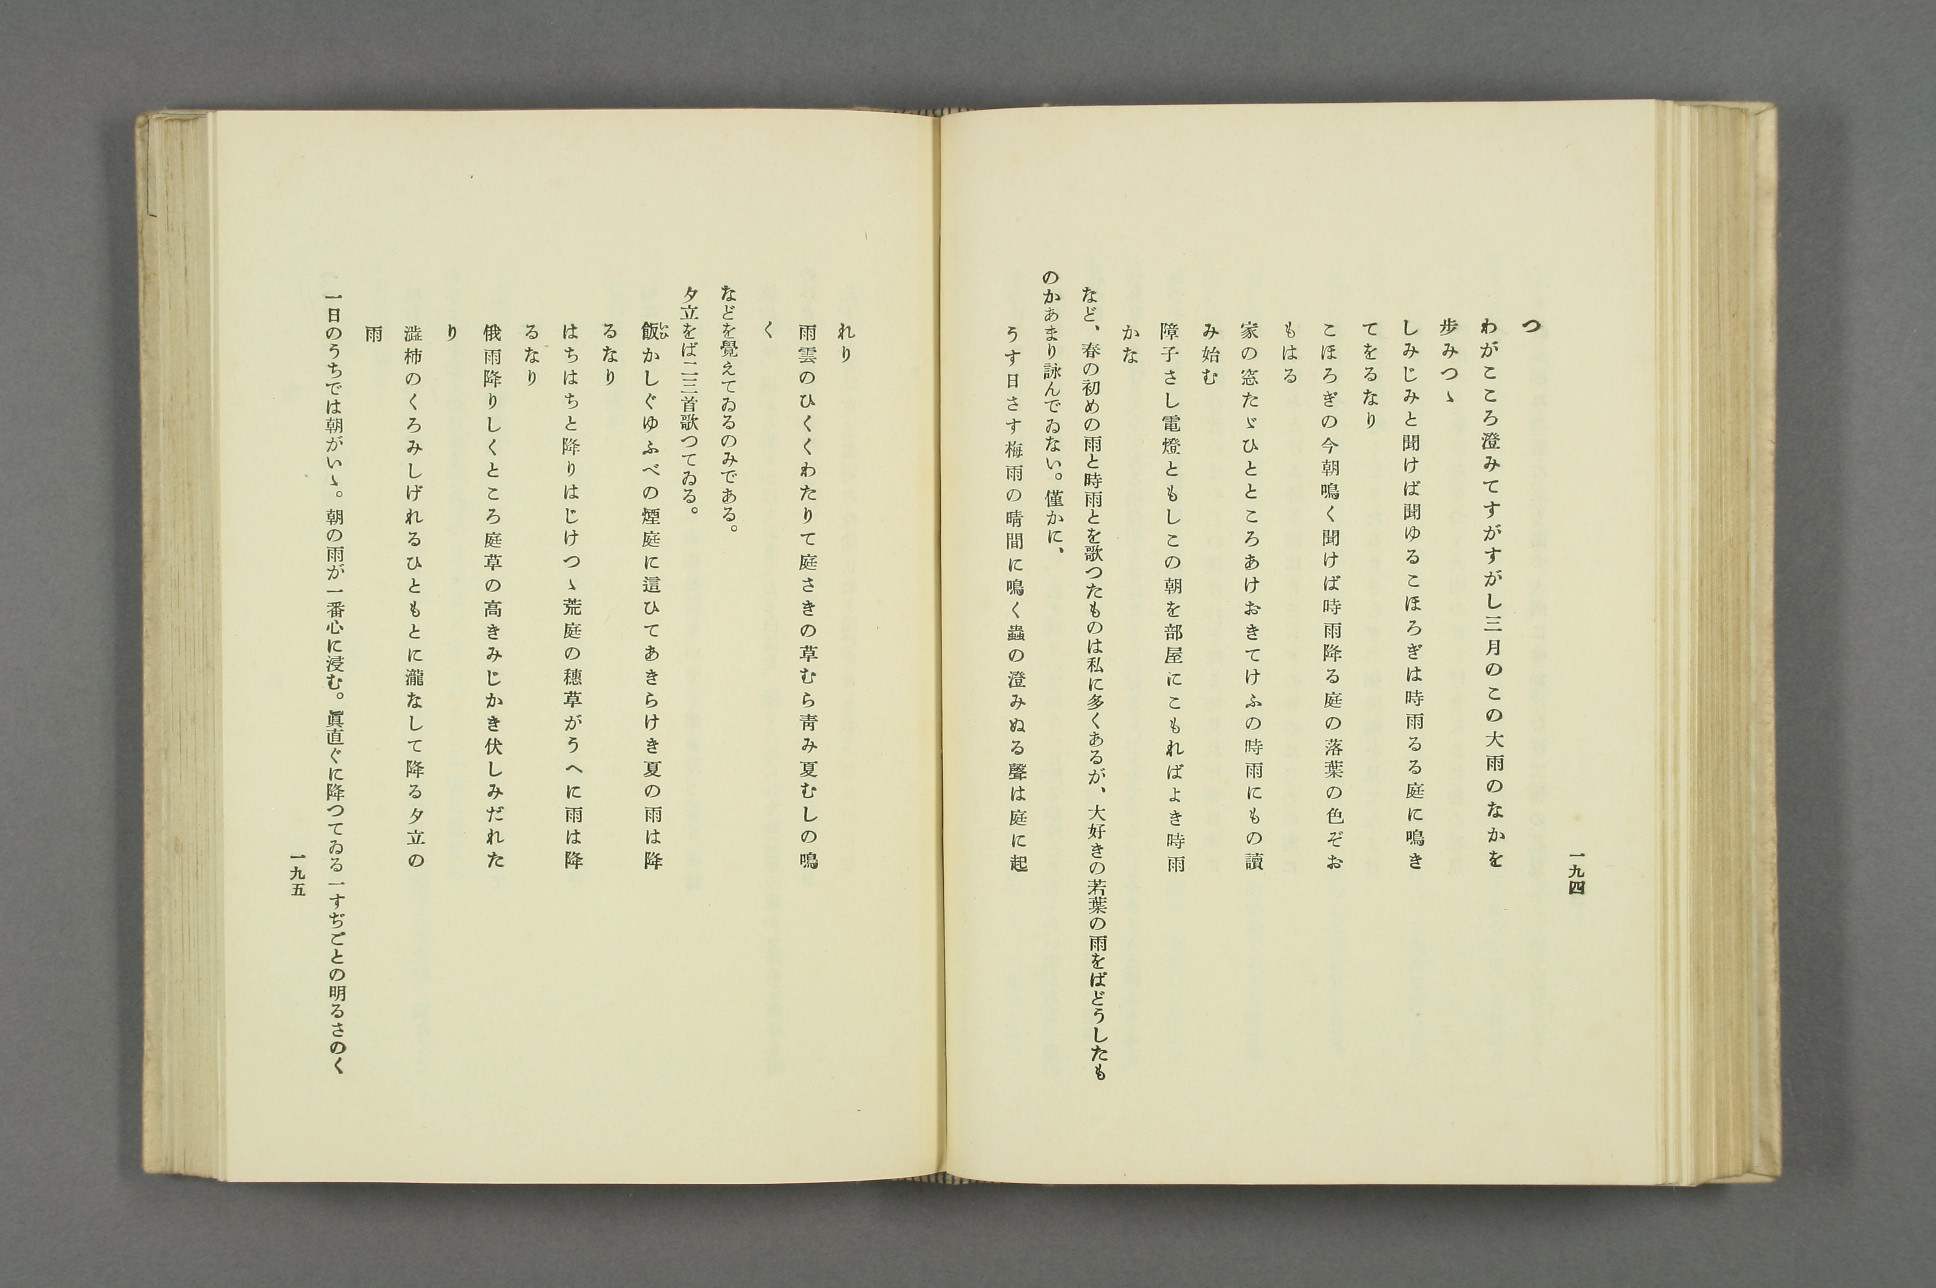 一九四
つ
わがこころ澄みてすがすがし三月のこの大雨のなかを
歩みつゝ
しみじみと聞けば聞ゆるこほろぎは時雨るる庭に鳴き
てをるなり
こほろぎの今朝鳴く聞けば時雨降る庭の落葉の色ぞお
もはる
家の窓たゞひとところあけおきてけふの時雨にもの讀
み始む
障子さし電燈ともしこの朝を部屋にこもればよき時雨
かな
など、春の初めの雨と時雨とを歌つたものは私に多くあるが、大好きの若葉の雨をばどうしたも
のかあまり詠んでゐない。僅かに、
うす日さす梅雨の晴間に鳴く蟲の澄みぬる聲は庭に起
れり
雨雲のひくくわたりて庭さきの草むら靑み夏むしの鳴
く
などを覺えてゐるのみである。
夕立をば二三首歌つてゐる。
飯かしぐゆふべの煙庭に這ひてあきらけき夏の雨は降
るなり
はちはちと降りはじけつゝ荒庭の穗草がうへに雨は降
るなり
俄雨降りしくところ庭草の高きみじかき伏しみだれた
り
澁柿のくろみしげれるひともとに瀧なして降る夕立の
雨
一日のうちでは朝がいゝ。朝の雨が一番心に浸む。眞直ぐに降つてゐる一すぢごとの明るさのく
一九五